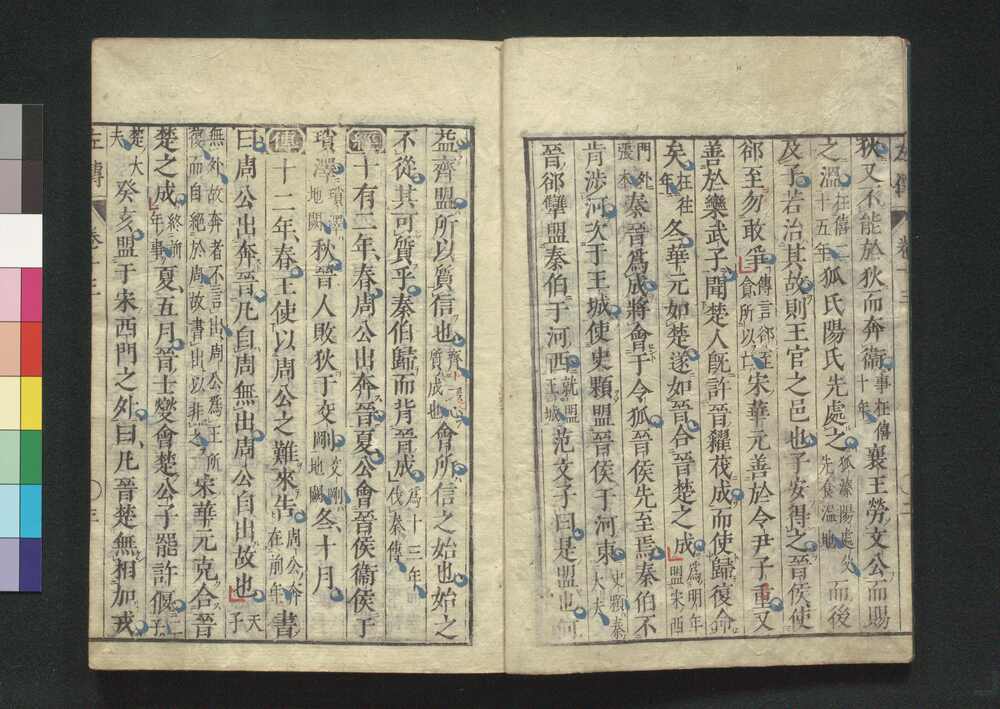 狄又不能於狄而奔衛事在僖十年襄王勞文公而賜
之溫在僖二十五年狐氏陽氏先處之狐溱陽處父先食溫地而後
及子若治其故則王官之邑也子安得之晉侯使
郤至勿敢爭傳言郤至貪所以亡宋華元善於令尹子重又
善於欒武子聞楚人既許晉糴茷成而使歸復命
矣在往年冬華元如楚遂如晉合晉楚之成爲明年盟宋西
門外張本秦晉爲成將會于令狐晉侯先至焉秦伯不
肯涉河次于王城使史顆盟晉侯于河東史顆秦大夫
晉郤犫盟秦伯于河西就盟王城范文子曰是盟也何
益齊盟所以質信也齊一心質成也會所信之始也始之
不從其可質乎秦伯歸而背晉成爲十三年伐秦傳
經十有二年春周公出奔晉夏公會晉侯衛侯于
瑣澤瑣澤地闕秋晉人敗狄于交剛交剛地闕冬十月
傳十二年春王使以周公之難來告周公奔在前年書
曰周公出奔晉凡自周無出周公自出故也天子
無外故奔者不言出周公爲王所復而自絕於周故書出以非之宋華元克合晉
楚之成終前年事夏五月晉士燮會楚公子罷許偃二子
楚大夫癸亥盟于宋西門之外曰凡晉楚無相加戎
左傳
卷十三